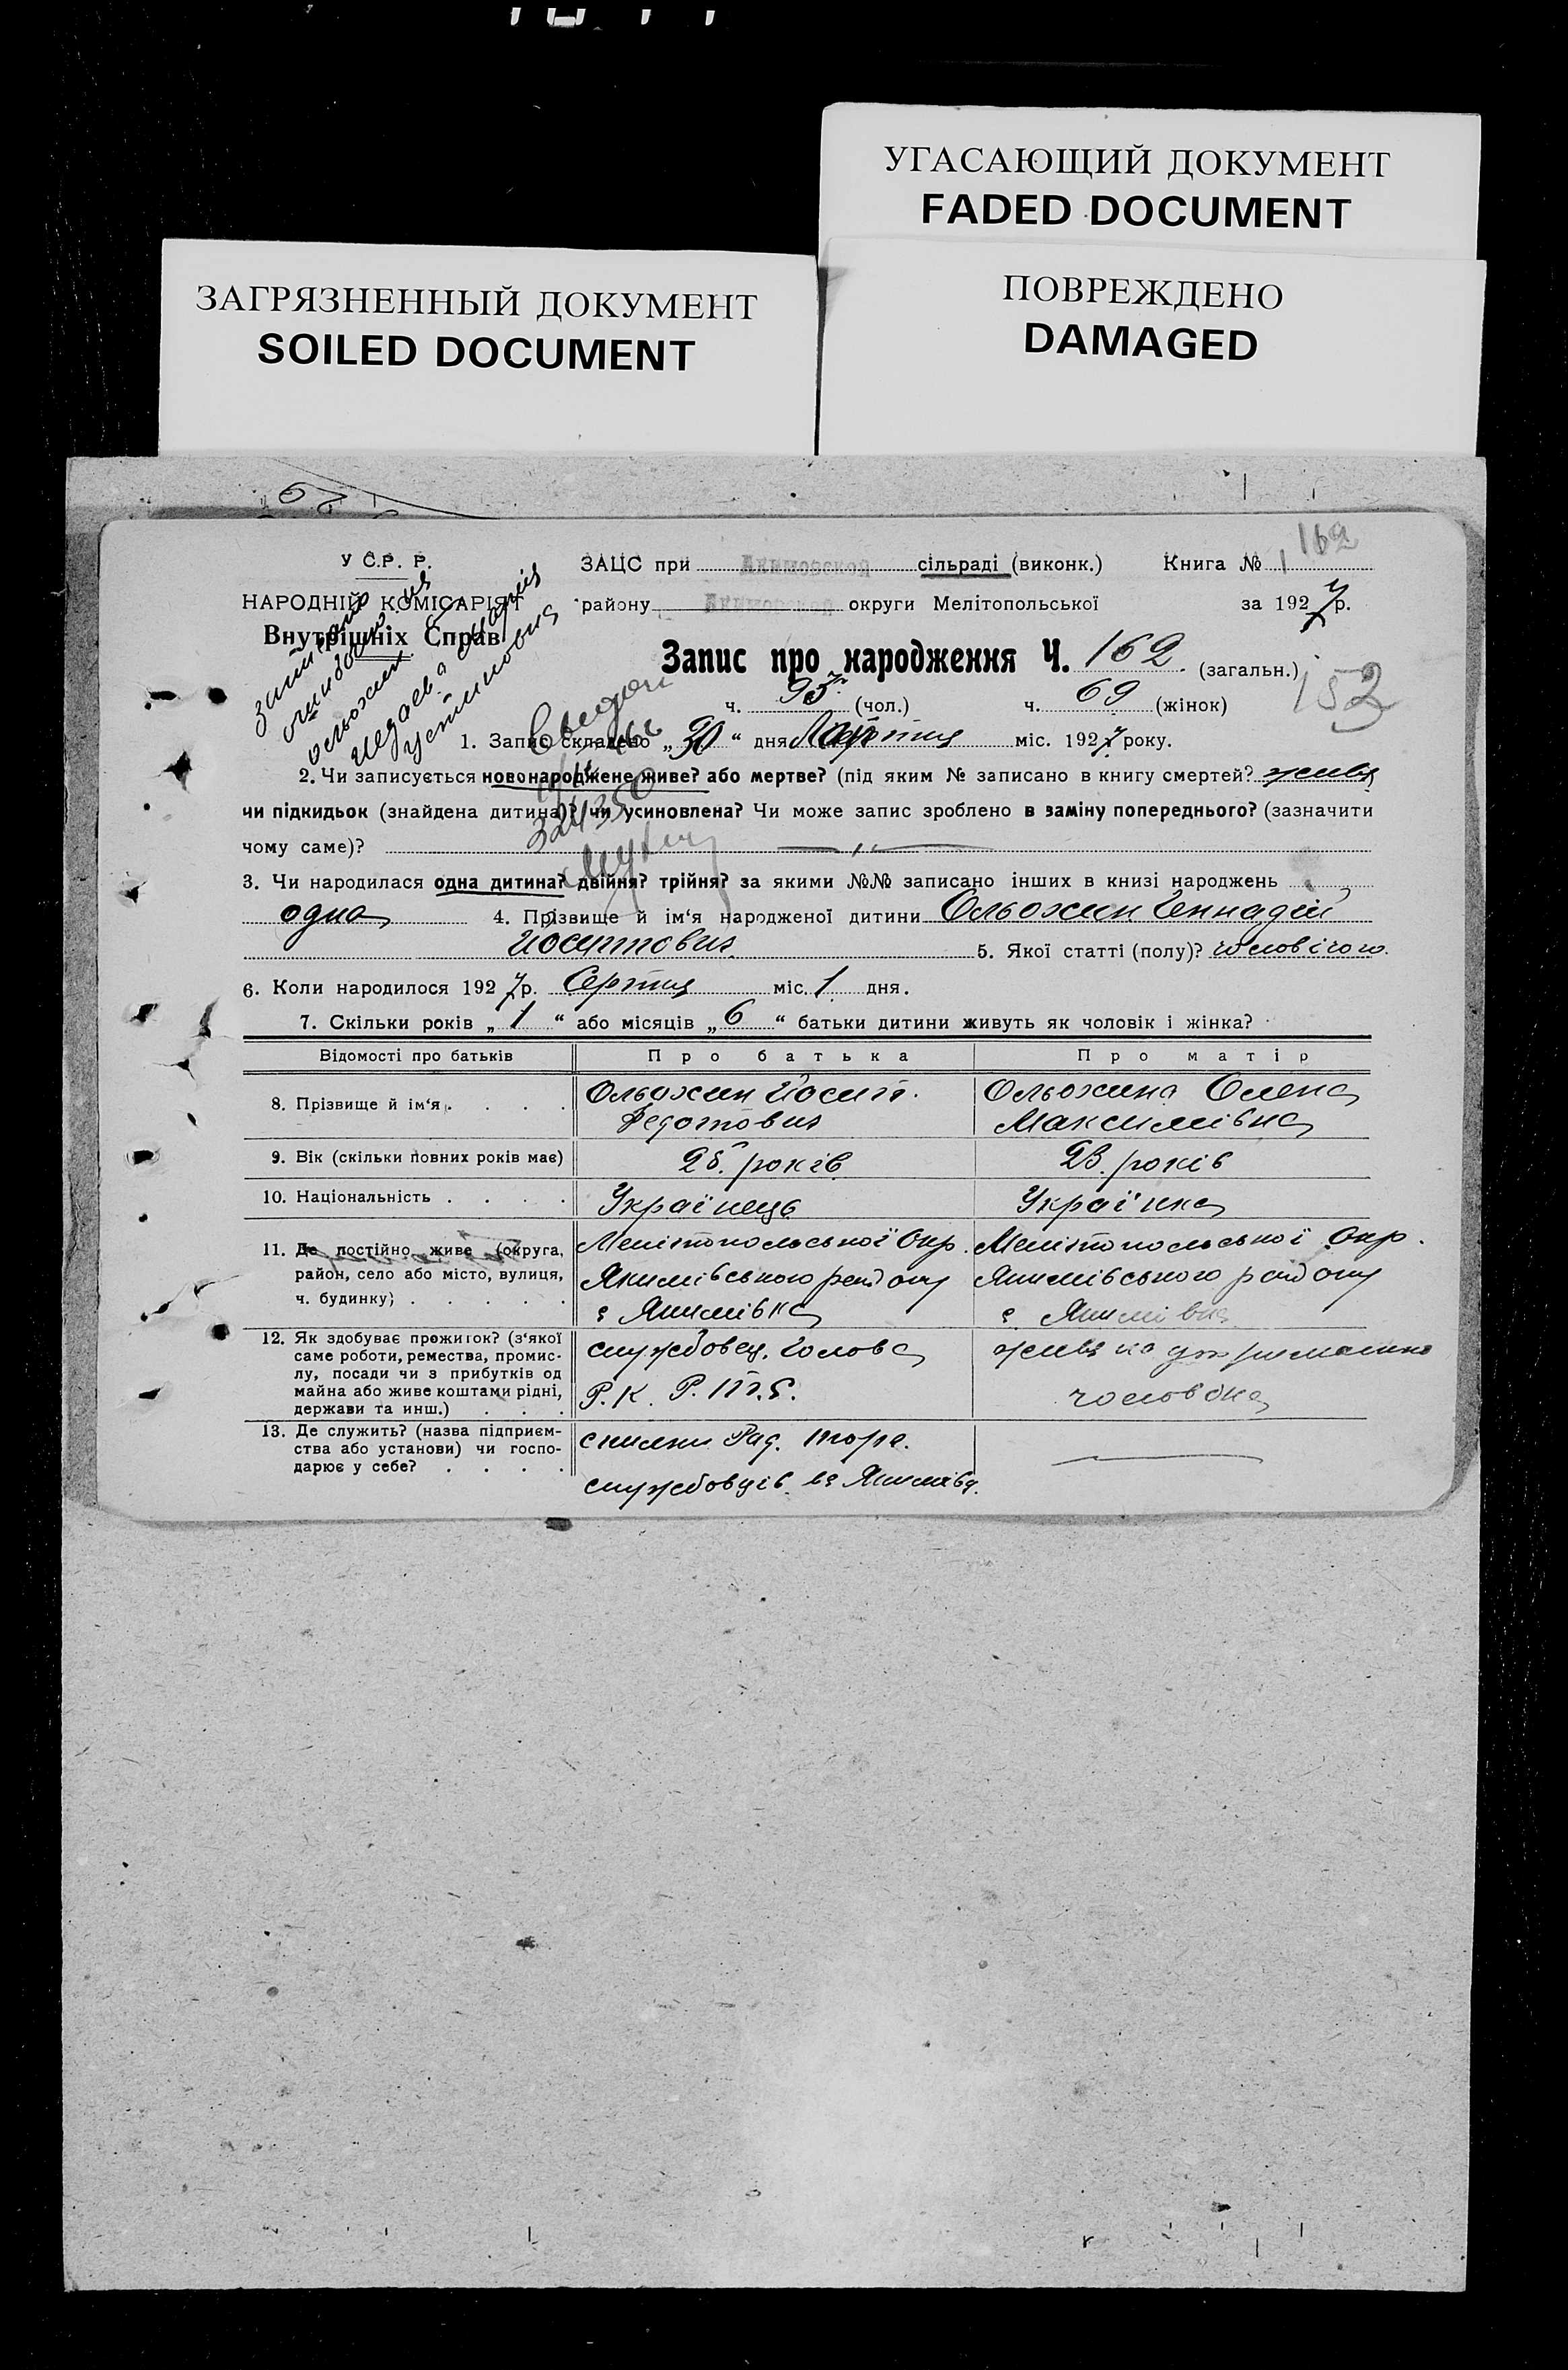 УГАСАЮЩИЙ ДОКУМЕНТ
FADED DOCUMENT
ЗАГРЯЗНЕННЫЙ ДОКУМЕНТ
SOILED DOCUMENT
ПОВРЕЖДЕНО
DAMAGED
162
У С.Р. Р.
НАРОДНІЙ КОМІСАРІЯТ
Внутрішніх Справ
ЗАЦС при Акимовской сільраді (виконк.) Книга № 1
району Акимовской округи Мелітопольської за 1927 р.
Запис про народження Ч. 162 (загальн.)
ч. 93 (чол.) ч. 69 (жінок)
152
1. Запис складено „30“ дня міс. 1927 року.
2. Чи записується новонароджене живе? або мертве? (під яким № записано в книгу смертей? живе
чи підкидьок (знайдена дитина)? чи усиновлена? Чи може запис зроблено в заміну попереднього? (зазначити
чому саме)? — „ —
3. Чи народилася одна дитина? двійня? трійня? за якими №№ записано інших в книзі народжень
одна 4. Прізвище й ім'я народженої дитини Ольожин Геннадій
Йосипович 5. Якої статті (полу)? чоловічого.
6. Коли народилося 1927 р. Серпня міс. 1 дня.
7. Скільки років „1“ або місяців „6“ батьки дитини живуть як чоловік і жінка?
Відомості про батьків Про батька Про матір
8. Прізвище й ім'я . . . . Ольожин Йосип. Ольожина Олена
Федотович Максимівна
9. Вік (скільки повних років має) років 23. років
10. Національність . . . . Українець Українка
11. Де постійно живе (округа, район, село або місто, вулиця, ч. будинку) . . . . .
Мелітопольської Окр. Мелітопольської Окр.
Якимівського району Якимівського району
с Якимівка с. Якимівка
12. Як здобуває прожиток? (з'якої саме роботи, ремества, промислу, посади чи з прибутків од майна або живе коштами рідні, держави та инш.) . . .
службовец. Голова живе на утриманні
Р. К. чоловіка
13. Де служить? (назва підприємства або установи) чи господарює у себе? . . . .
спилки Рад. торг. —
службовців. в с Якимівц.